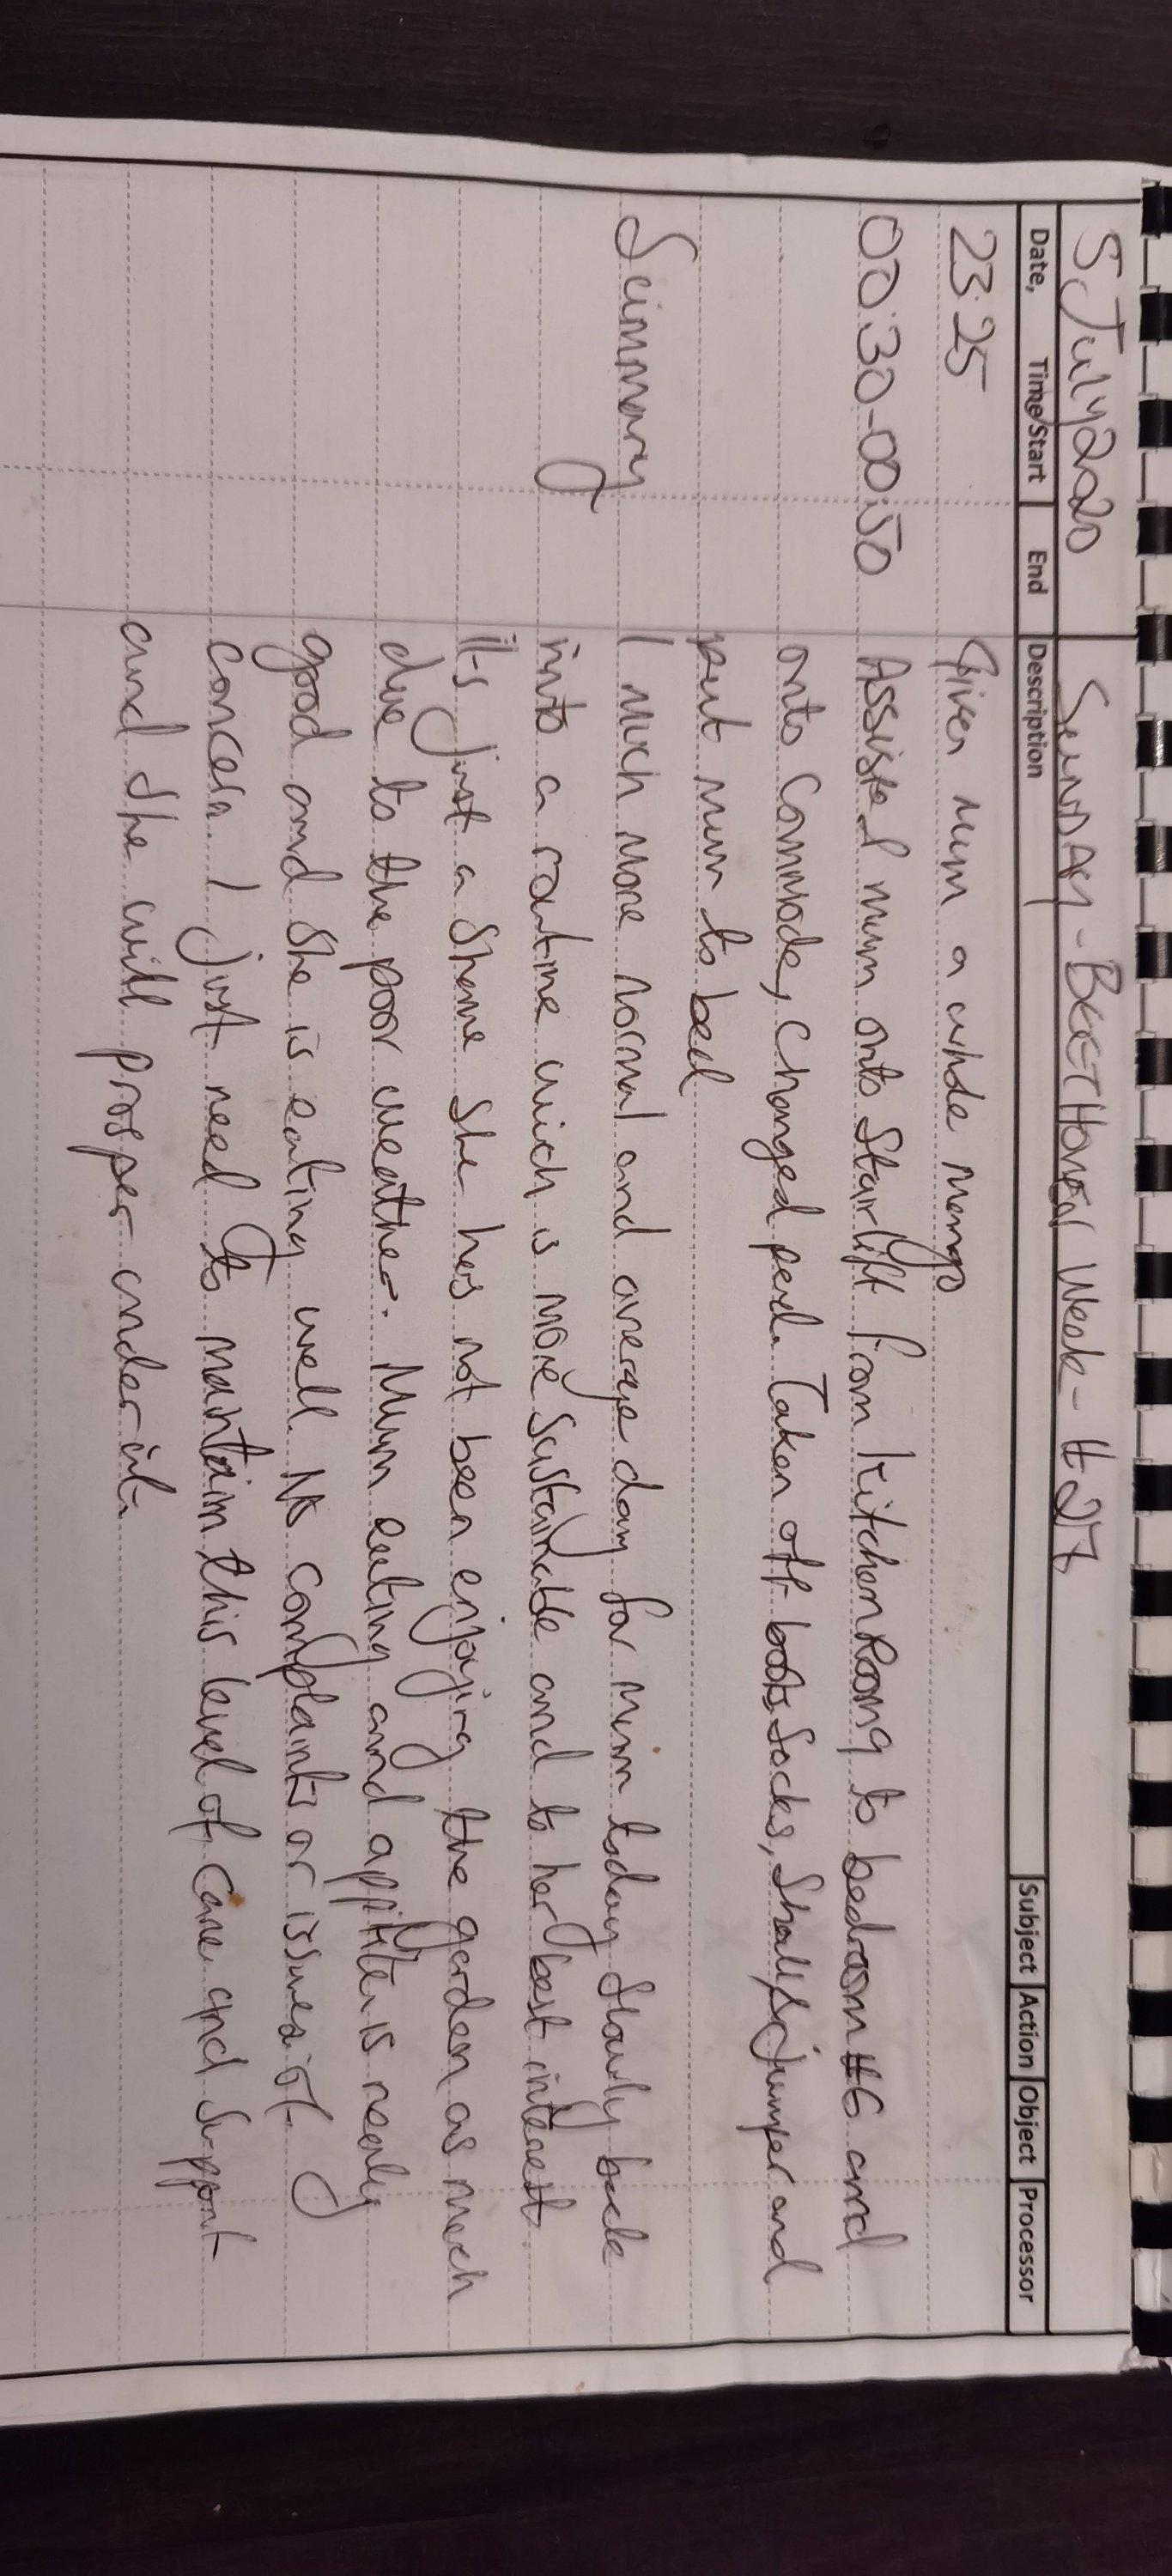 5 July 2020 SUNDAY - BEETHOVEN Week - #27
Date, Time/Start End Description Subject Action Object Processor
23:25 Given mum a whole mango
00:30-00:50 Assisted mum onto Stairlift from Kitchen Room 9 to bedroom #6 and
onto Commode, changed pad. Taken off boots, Socks, Shall, & Jumper and
put mum to bed
Summary I much more normal and average day for mum today slowly back
into a routine which is more sustainable and to her best interest.
it's just a shame she has not been enjoying the garden as much
due to the poor weather. Mum eating and appitite is really
good and she is eating well. No complaints or issues of
concern. I just need to maintain this level of care and support
and she will prosper under it.